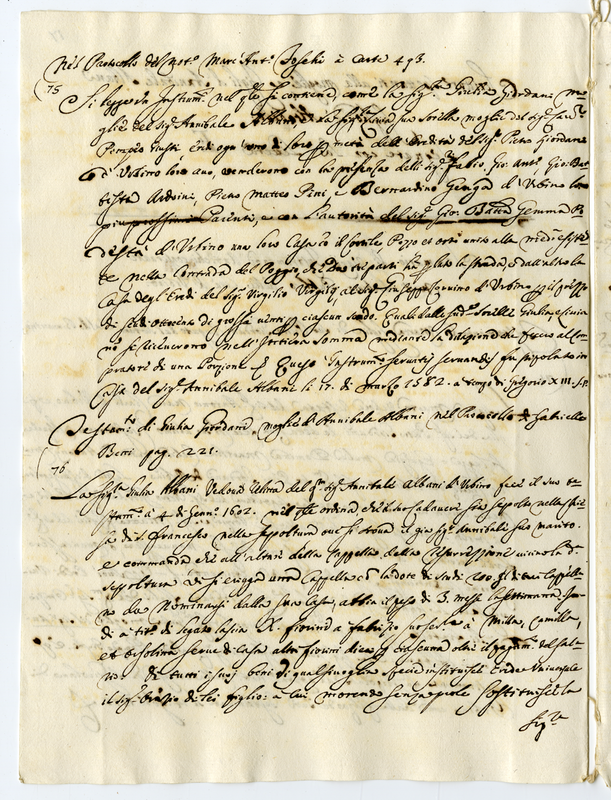 Nel Protocollo del Not.o Marc' Ant.o à Carte 493.
75
Si legge un Instrum.o nel q.le si contiene, come la Sig.ra Giulia Giordani mo-
glie del Sig.r Annibale Albani e la Sig.ra sua Sorella moglie del Sig.r
Giusti eredi ogn'una di loro p metà dell'eredità del Sig.r Pietro Giordani
d'Urbino loro avo, venderono con la presenza delli Sig.ri Fabio, Gio: Ant.o, Gio: Bat-
tista Arduini, Piero Matteo Pini, e Bernardino Genga d'Urbino loro
Parenti, e con l'autorità del Sig.r Gio: Batta Gemma Po-
destà d'Urbino una loro Casa cò il Cortile Pozzo et orto unito alla med.a
te nella Contrada del Poggio, da due parti la strada, e dall'altro la
Casa degl'Eredi del Sig.r Virgilio al Sig.r Giuseppe Corvino d'Urbino p il prezzo
di Scudi ottocento di grossi venti p ciascun scudo. Quali dalle sud.e Sorelle Giulia e
no si riceverono nell'intiera somma mediante la che fecero al Com-
pratore di una Porzione p Queso Instrum.o servatis servandis fu stipolato in
Casa del Sig.r Annibale Albani li 17. di marzo 1582. a tempo di Gregorio XIII.
Testam.to di Giulia Giordani, moglie d'Annibale Albani nel Protocollo di Gabrielle
Berri pag. 221.
76
La Sig.ra Giulia Albani Vedova del q. Sig.r Annibale Albani d'Urbino fece il suo te-
stam.to à 4 di Genn.o 1602. nel q.le ordina che il suo cadavere sia sepolto nella Chie-
sa di S. Francesco nella sepoltura ove si trova il già Sig.r Annibale suo marito.
e comanda che all'altare della Cappella della Resurrezzione vicino la d.a
sepoltura vi si eregga una Cappella cò la dote di scudi 200 il di cui Cappella-
no da Nominarsi dalla sua Casa, abbia il peso di 3. messe la settimana.
di à tit.o di Legato lascia X. fiorini a Fabrizio e à Milla, Camilla,
et Orsolina serve di casa altri fiorini dieci p ciascuna oltre il pagam.o del Sala-
rio. Di tutti i suoi beni di qualsivoglia specie instituisce erede universale
il Sig.r Orazio di lei figlio: a cui morendo senza prole sostituisce la
Sig.ra